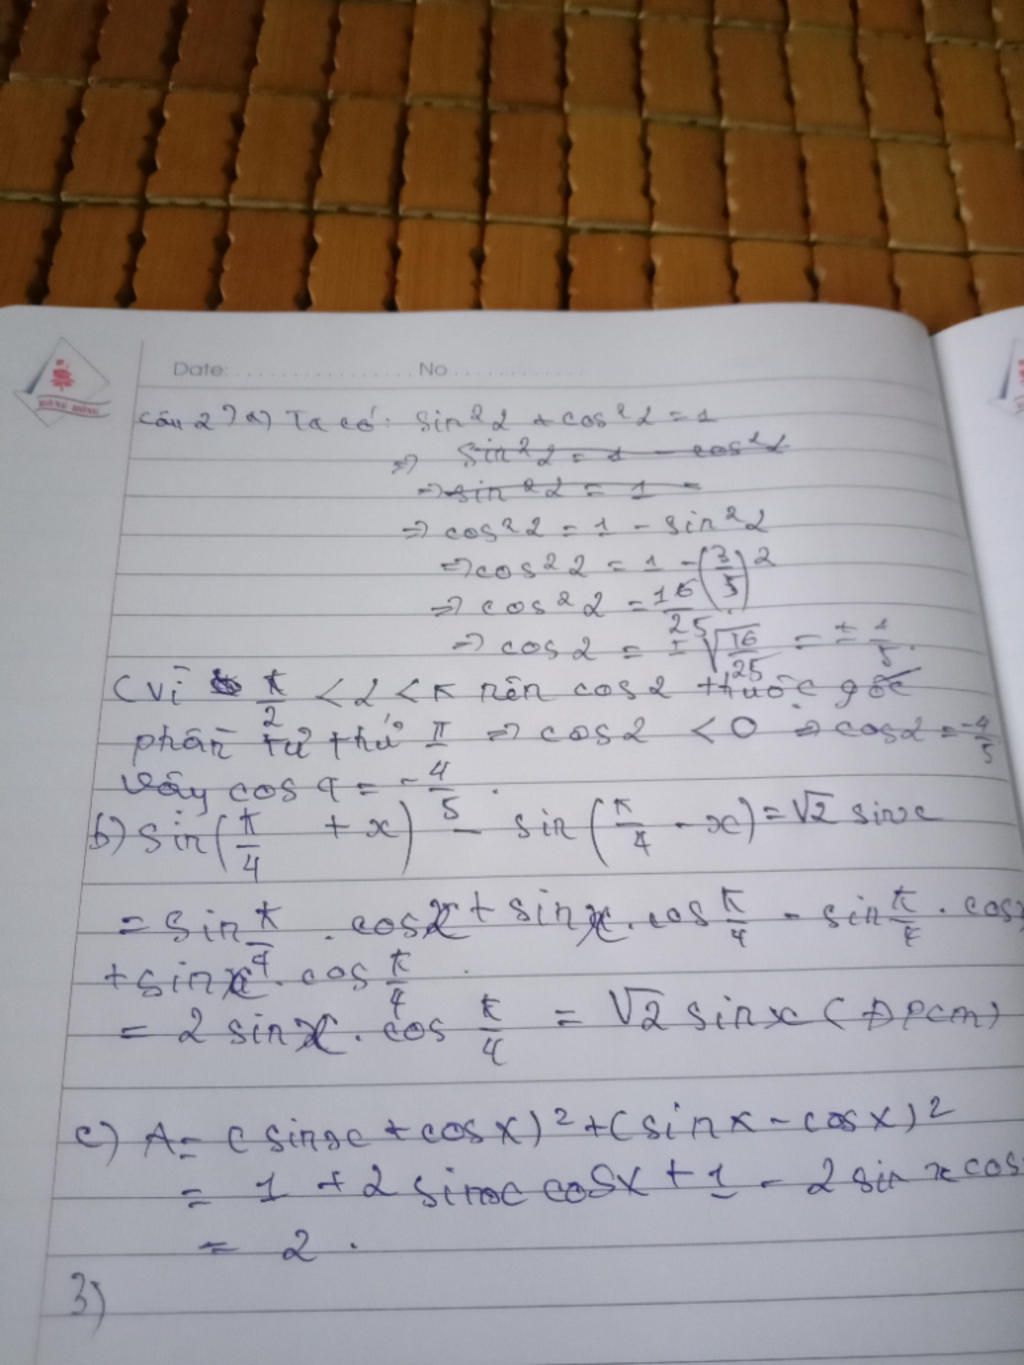 HỒNG MỎNG
Date: ................ No ............
Câu 2) a) Ta có: sin²2 + cos²2 = 1
⇒ sin²2 = 1 - cos²2
⇒ sin²2 = 1 -
⇒ cos²2 = 1 - sin²2
⇒ cos²2 = 1 - (3/5)²
⇒ cos²2 = 16/25.
⇒ cos2 = ±√(16/25) = ± 1/5.
(vì π/2 < 2 < π nên cos2 thuộc góc
phần tư thứ II ⇒ cos2 < 0 ⇒ cos2 = -4/5
vậy cos9 = -4/5.
b) sin(π/4 + x) - sin(π/4 - x) = √2 sinx
= sin π/4 . cosx + sinx . cos π/4 - sin π/4 . cosx
+ sinx . cos π/4 .
= 2 sinx . cos π/4 = √2 sinx (ĐPCM)
c) A = (sinx + cosx)² + (sinx - cosx)²
= 1 + 2 sinx cosx + 1 - 2 sin x cos
= 2 .
3)